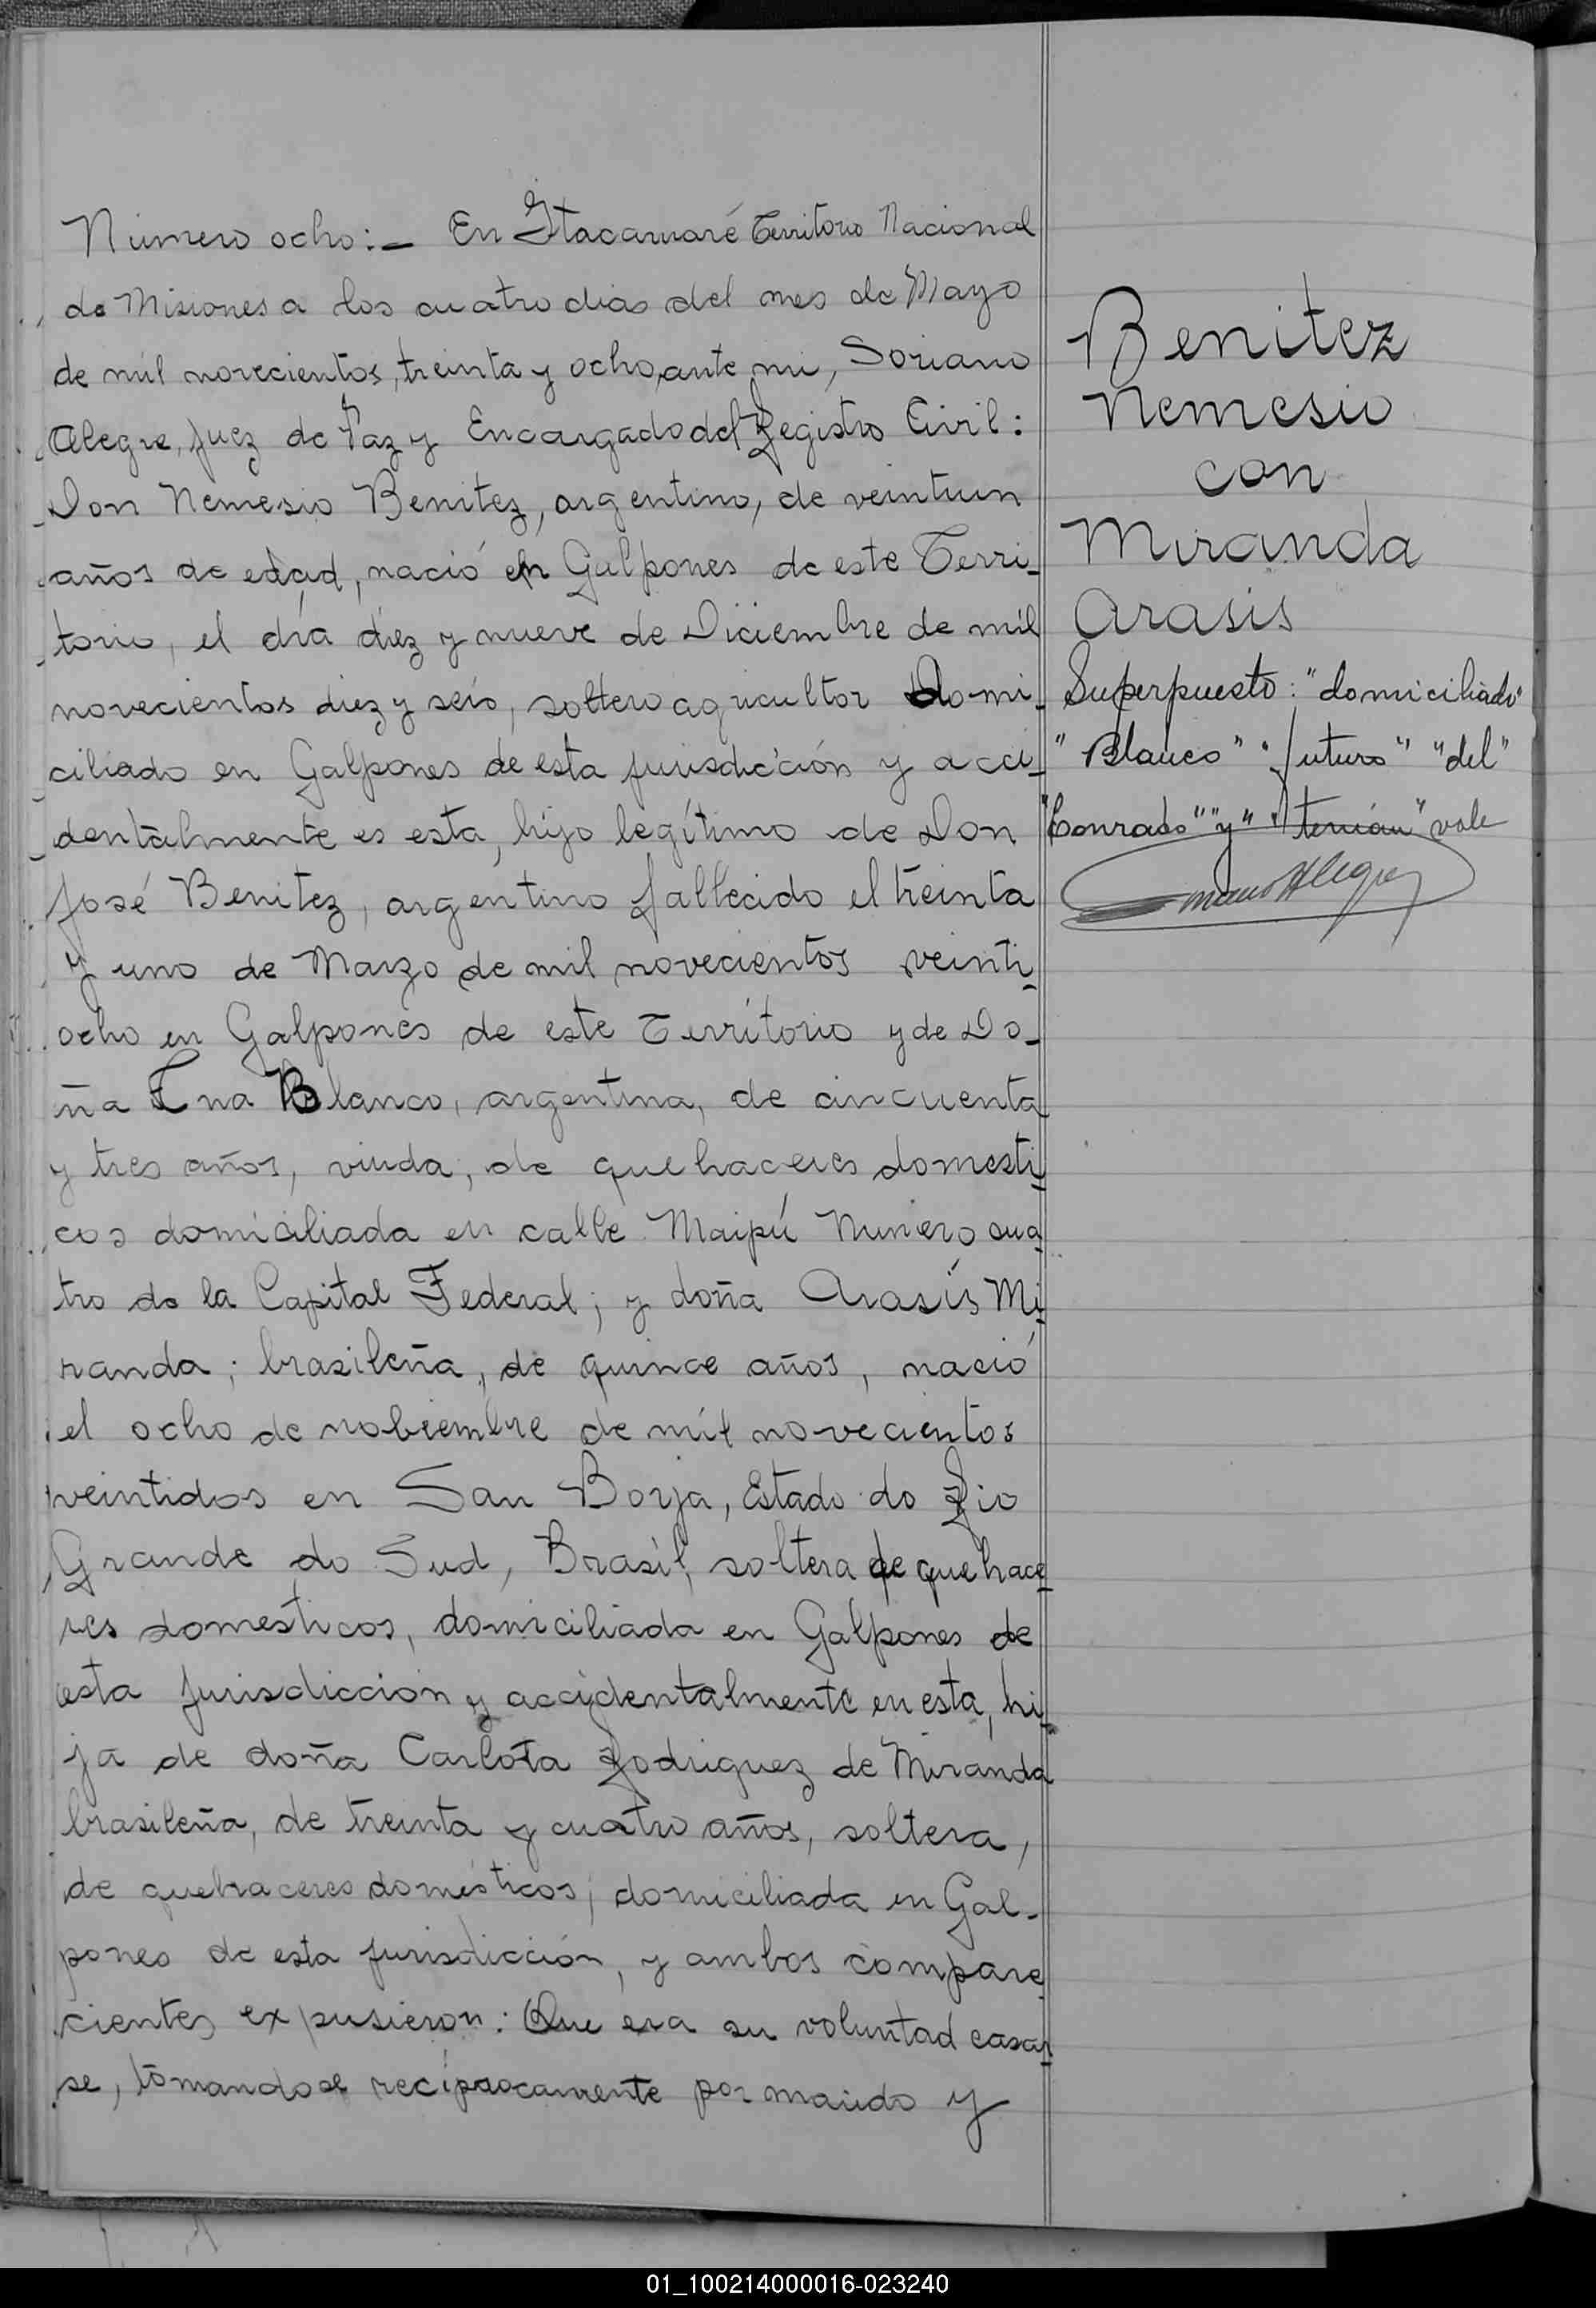 Número ocho:– En Itacaruaré Territorio Nacional
de Misiones a los cuatro dias del mes de Mayo
de mil novecientos, treinta y ocho, ante mi, Soriano
Alegre, Juez de Paz y Encargado del Registro Civil:
Don Nemesio Benitez, argentino, de veintiun
años de edad, nació en Galpones de este Terri-
torio, el día diez y nueve de Diciembre de mil
novecientos diez y seis, soltero agricultor Domi-
ciliado en Galpones de esta jurisdicción y acci-
dentalmente es esta, hijo legítimo de Don
José Benitez, argentino fallecido el treinta
y uno de Marzo de mil novecientos veinti-
ocho en Galpones de este Territorio y de Do-
ña Blanco, argentina, de cincuenta
y tres años, viuda, de quehaceres domesti-
cos domiciliada en calle Maipú Numero cua-
tro de la Capital Federal; y doña Arasís Mi-
randa; brasileña, de quince años, nació
el ocho de nobiembre de mil novecientos
veintidos en San Borja, Estado do Rio
Grande do Sud, Brasil, soltera de quehace-
res domesticos, domiciliada en Galpones de
esta jurisdiccion y accidentalmente en esta, hi-
ja de doña Carlota Rodriguez de Miranda
brasileña, de treinta y cuatro años, soltera,
de quehaceres domésticos, domiciliada en Gal-
pones de esta jurisdicción, y ambos compare-
cientes expusieron: Que era su voluntad casar-
se, tomandose recíprocamente por marido y
Benitez
Nemesio
con
Miranda
Arasis
Superpuesto: "domiciliado"
"Blanco" "futuro" "del"
"Conrado" "y" "tenían" vale
Alegre
01_100214000016-023240